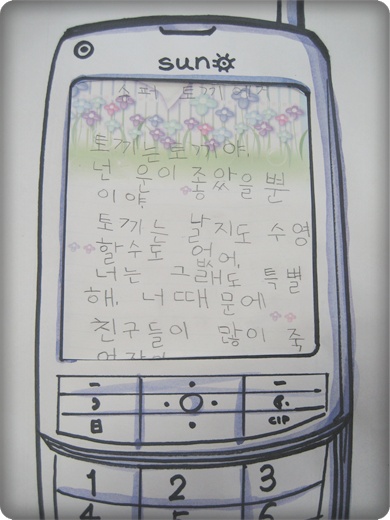 sun
슈퍼 토끼에게
토끼는 토끼야.
넌 운이 좋았을 뿐
이야.
토끼는 날지도 수영
할수도 없어.
너는 그래도 특별
해. 너 때문에
친구들이 많이 죽
CLP
1 2 3
4 5 6